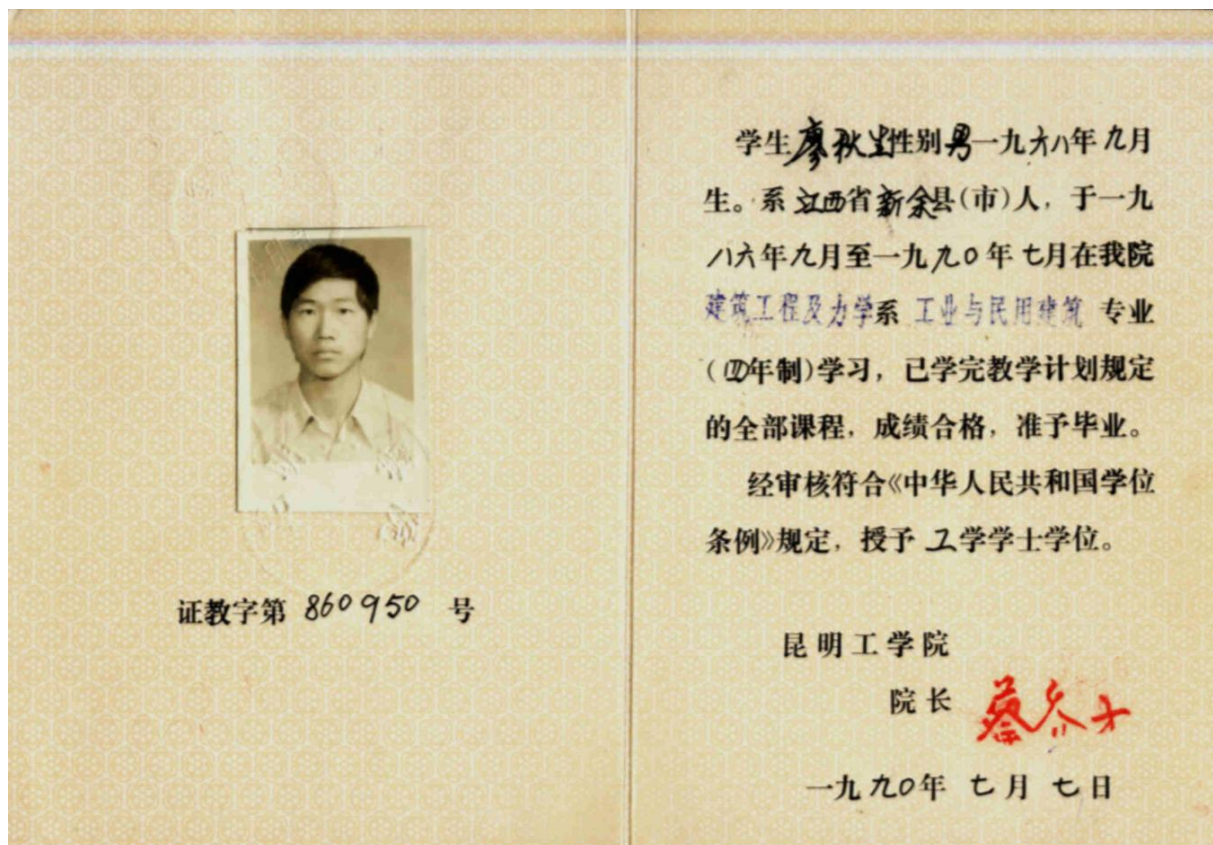 证教字第 860950 号
学生廖秋生性别男一九六八年九月
生。系江西省新余县(市)人，于一九
八六年九月至一九九０年七月在我院
建筑工程及力学系 工业与民用建筑 专业
(四年制)学习，已学完教学计划规定
的全部课程，成绩合格，准予毕业。
经审核符合《中华人民共和国学位
条例》规定，授予 工学学士学位。
昆明工学院
院长
一九九０年 七月 七日